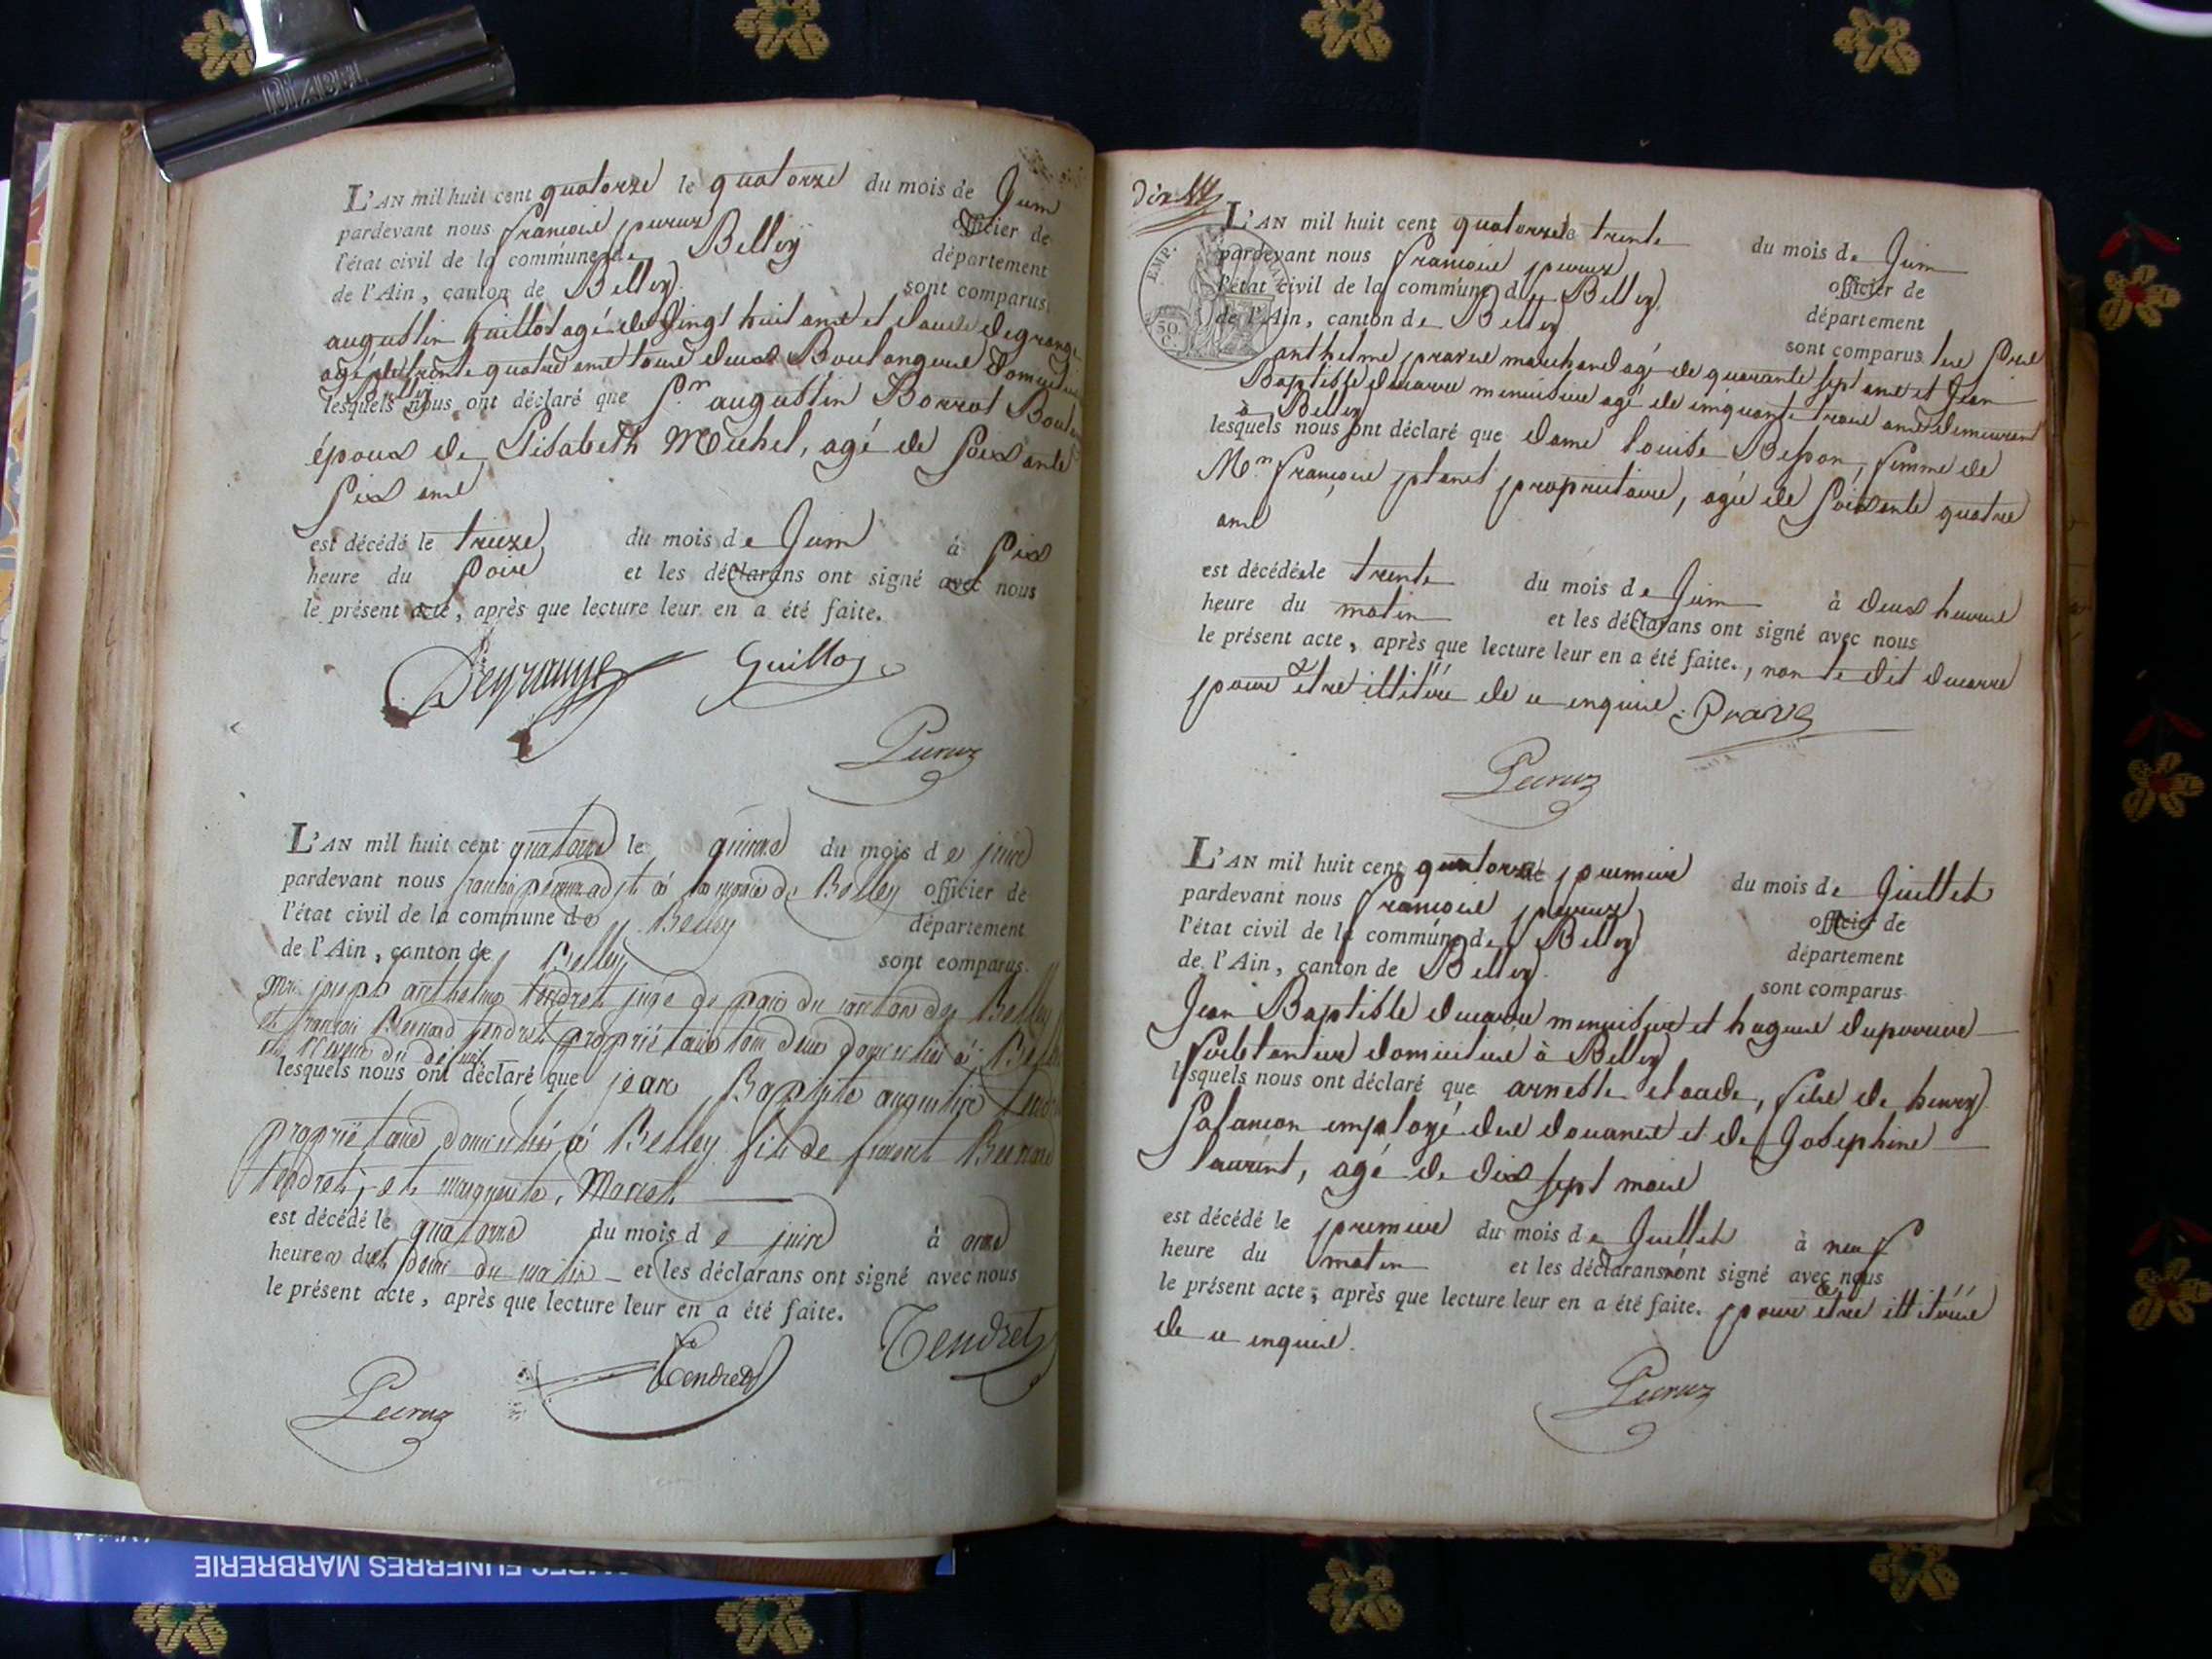 DIABEL
L'AN mil huit cent quatorze le quatorze du mois de Juin
pardevant nous françois peruz officier de
l'état civil de la commune de Belley département
de l'Ain, canton de Belley sont comparus
augustin Guillot agé de vingt huit ans et Claude Degrange
agé de trente quatre ans tous deux Boulangers
lesquels nous ont déclaré que Sr. augustin Borrot
époux de Elisabeth Michel, agé de soixante
six ans
est décédé le treize du mois de Juin à six
heure du soir et les déclarans ont signé avec nous
le présent acte, après que lecture leur en a été faite.
Degrange Guillot
Peruz
L'AN mil huit cent quatorze le quinze du mois de juin
pardevant nous françois peruz adjt à la mairie de Belley officier de
l'état civil de la commune de Belley département
de l'Ain, canton de Belley sont comparus
Mrs joseph anthelme tendret juge de paix du canton de Belley
et françois Bernard tendret propriétaire tous deux domiciliés à Belley
du défunt
lesquels nous ont déclaré que jean Baptiste augustin
propriétaire domicilié à Belley fils de Bernard
tendret, et marguerite, Marcet
est décédé le quatorze du mois de juin à onze
heures et demi du matin et les déclarans ont signé avec nous
le présent acte, après que lecture leur en a été faite.
Tendret
Tendret
Peruz
FUNERRES MARBRERIE
L'AN mil huit cent quatorze le trente du mois de Juin
pardevant nous françois peruz officier de
l'état civil de la commune de Belley département
de l'Ain, canton de Belley sont comparus les srs
EMP.
50.
C.
anthelme prave marchand agé de quarante sept ans et Jean
Baptiste ducarre menuisier agé de cinquante trois ans demeurant
à Belley
lesquels nous ont déclaré que dame louise Besson, femme de
Mr. françois planet propriétaire, agée de soixante quatre
ans
est décédée le trente du mois de Juin à deux heures
heure du matin et les déclarans ont signé avec nous
le présent acte, après que lecture leur en a été faite., non le dit ducarre
pour être illitéré de ce enquis. Prave
Peruz
L'AN mil huit cent quatorze le premier du mois de Juillet
pardevant nous françois peruz officier de
l'état civil de la commune de Belley département
de l'Ain, canton de Belley. sont comparus
Jean Baptiste ducarre menuisier et hugues
ferblantier domiciliés à Belley
lesquels nous ont déclaré que arneste claude, fils de henry
Salancon employé des douanes et de Josephine
laurent, agé de dix sept mois
est décédé le premier du mois de Juillet à neuf
heure du matin et les déclarans n'ont signé avec nous
le présent acte, après que lecture leur en a été faite. pour être illitérés
de ce enquis.
Peruz